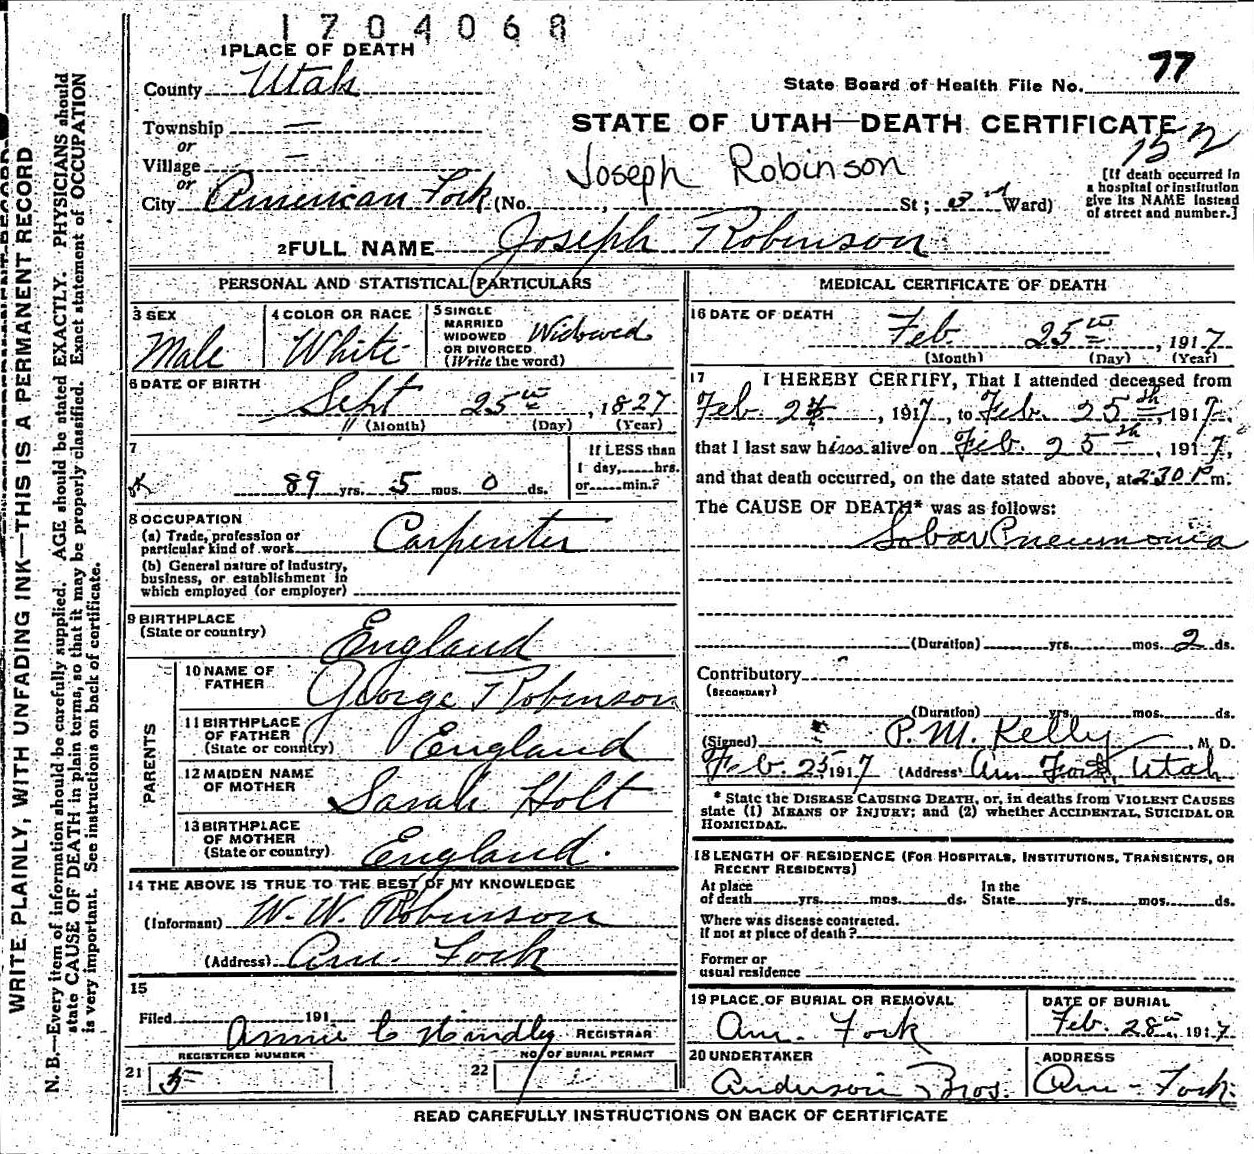 1704068
1 PLACE OF DEATH
77
County Utah
State Board of Health File No.
Township —
STATE OF UTAH—DEATH CERTIFICATE
or
152
Village —
Joseph Robinson
or
City American Fork (No. , St; 3rd Ward)
[If death occurred in a hospital or institution give its NAME instead of street and number.]
2 FULL NAME Joseph Robinson
PERSONAL AND STATISTICAL PARTICULARS
3 SEX Male
4 COLOR OR RACE White
5 SINGLE MARRIED WIDOWED OR DIVORCED (Write the word) Widowed
6 DATE OF BIRTH
Sept 25th, 1827
(Month) (Day) (Year)
7
OK 89 yrs. 5 mos. 0 ds.
If LESS than
1 day, hrs.
or min.?
8 OCCUPATION
(a) Trade, profession or
particular kind of work Carpenter
(b) General nature of industry,
business, or establishment in
which employed (or employer)
9 BIRTHPLACE
(State or country) England
PARENTS
10 NAME OF
FATHER George Robinson
11 BIRTHPLACE
OF FATHER
(State or country) England
12 MAIDEN NAME
OF MOTHER Sarah Holt
13 BIRTHPLACE
OF MOTHER
(State or country) England.
14 THE ABOVE IS TRUE TO THE BEST OF MY KNOWLEDGE
(Informant) W. W. Robinson
(Address) Am. Fork
15
Filed 191
Annie C Hindley REGISTRAR
REGISTERED NUMBER
21 5
NO. OF BURIAL PERMIT
22
MEDICAL CERTIFICATE OF DEATH
16 DATE OF DEATH
Feb. 25th, 1917
(Month) (Day) (Year)
17 I HEREBY CERTIFY, That I attended deceased from
Feb. 24, 1917, to Feb. 25th, 1917,
that I last saw him alive on Feb. 25th, 1917,
and that death occurred, on the date stated above, at 2:30 P m.
The CAUSE OF DEATH* was as follows:
Lobar Pneumonia
(Duration) yrs. mos. 2 ds.
Contributory
(SECONDARY)
(Duration) yrs. mos. ds.
(Signed) P. M. Kelly, M. D.
Feb. 25 1917 (Address) Am Fork, Utah
* State the DISEASE CAUSING DEATH, or, in deaths from VIOLENT CAUSES
state (1) MEANS OF INJURY; and (2) whether ACCIDENTAL, SUICIDAL OR
HOMICIDAL.
18 LENGTH OF RESIDENCE (FOR HOSPITALS, INSTITUTIONS, TRANSIENTS, OR
RECENT RESIDENTS)
At place of death yrs. mos. ds. In the State yrs. mos. ds.
Where was disease contracted.
If not at place of death?
Former or
usual residence
19 PLACE OF BURIAL OR REMOVAL
Am. Fork
DATE OF BURIAL
Feb. 28th, 1917
20 UNDERTAKER
Anderson Bros.
ADDRESS
Am - Fork.
READ CAREFULLY INSTRUCTIONS ON BACK OF CERTIFICATE
WRITE PLAINLY, WITH UNFADING INK—THIS IS A PERMANENT RECORD
N. B.—Every item of information should be carefully supplied. AGE should be stated EXACTLY. PHYSICIANS should
state CAUSE OF DEATH in plain terms, so that it may be properly classified. Exact statement of OCCUPATION
is very important. See instructions on back of certificate.